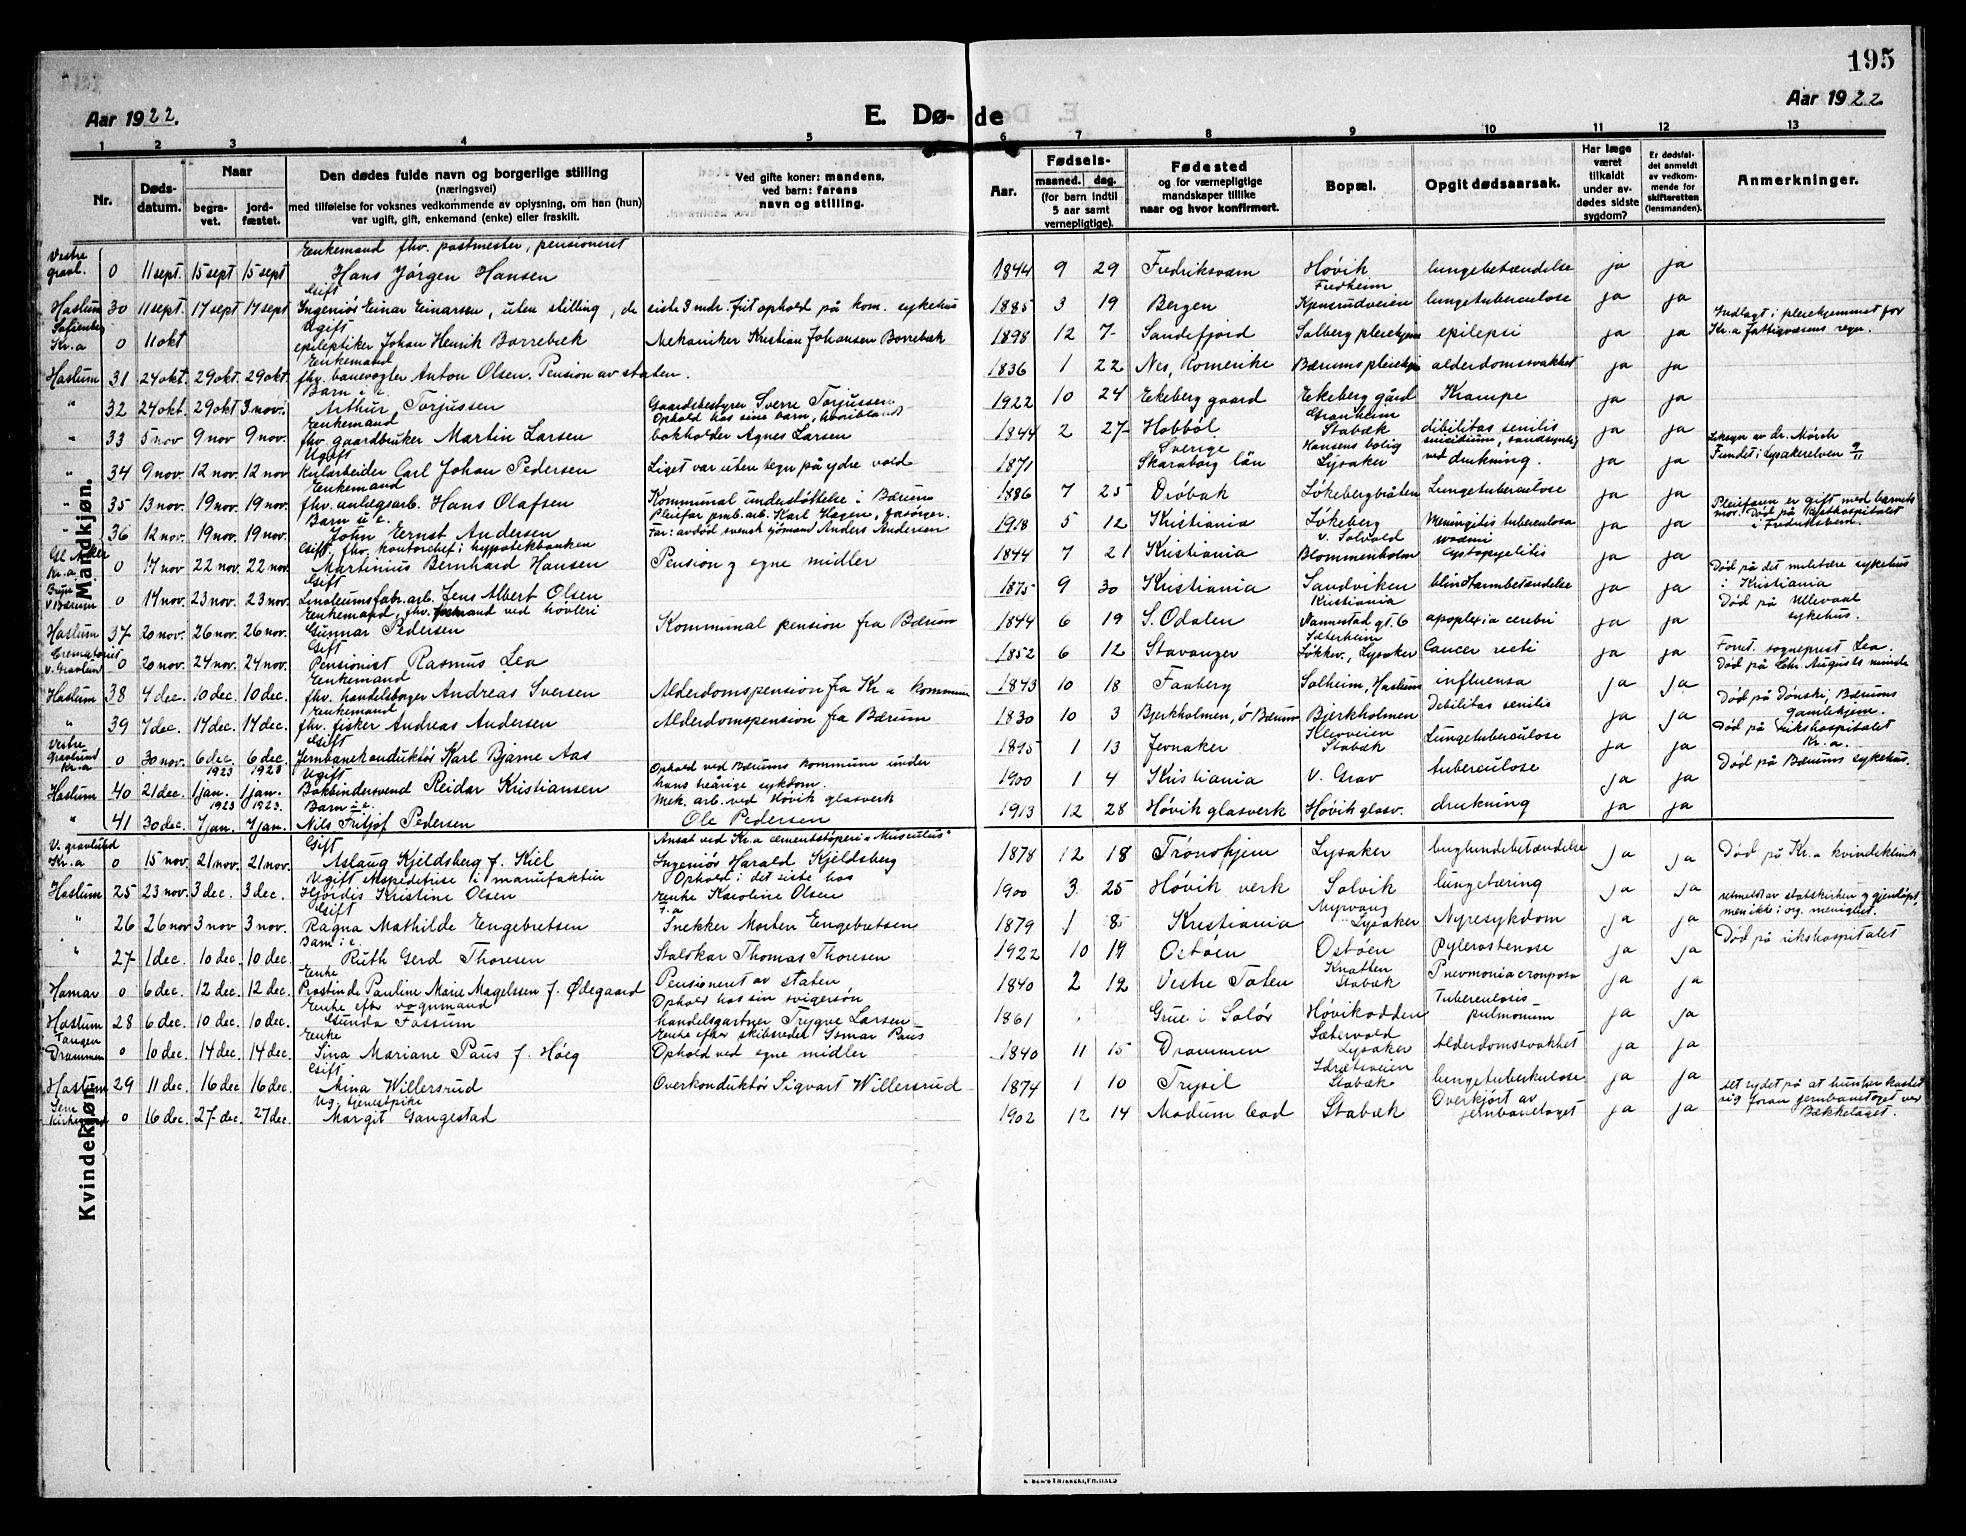 195
Aar 1922.
E. Dø-
de
Aar 1922
1 2 3 4 5 6 7 8 9 10 11 12 13
Nr.
Døds-
datum.
Naar
begra-
vet.
jord-
fæstet.
Den dødes fulde navn og borgerlige stilling
(næringsvei)
med tilføielse for voksnes vedkommende av oplysning, om han (hun)
var ugift, gift, enkemand (enke) eller fraskilt.
Ved gifte koner: mandens,
ved barn: farens
navn og stilling.
Aar.
Fødsels-
maaned. dag.
(for barn indtil
5 aar samt
vernepligtige).
Fødested
og for værnepligtige
mandskaper tillike
naar og hvor konfirmert.
Bopæl.
Opgit dødsaarsak.
Har læge
været
tilkaldt
under av-
dødes sidste
sygdom?
Er dødsfal-
det anmeldt
av vedkom-
mende for
skifteretten
(lensmanden).
Anmerkninger.
Mandkjøn.
Vestre gravl. 0 11 sept. 15 sept 15 sept Enkemand fhv. postmester, pensioneret Hans Jørgen Hansen 1844 9 29 Fredriksværn Høvik lungebetændelse ja ja
Haslum 30 11 sept. 17 sept 17 sept Gift Ingeniør Einar Einarsen, uten stilling, de sidste 3 mdr. frit ophold på kom. sykehus 1885 3 19 Bergen Fredheim Kjensrudveien lungetuberculose ja ja
Sofienberg Kr.a 0 11 okt Ugift epileptiker Johan Henrik Borrebæk Mekaniker Kristian Johansen Borrebæk 1898 12 7 Sandefjord Solberg pleiehjem epilepsi ja ja Indlagt i pleiehjemmet for Kr.a fattigvæsens regn.
Haslum 31 24 okt. 29 okt. 29 okt. Enkemand fhv. banevogter Anton Olsen. Pension av staten. 1836 1 22 Nes, Romerike Bærums pleiehjem alderdomssvakhet ja ja
" 32 24 okt. 29 okt 3 nov. Barn i e. Arthur Torjussen Gaardsbestyrer Sverre Torjussen 1922 10 24 Ekeberg gaard Ekeberg gård Krampe ja ja
" 33 5 nov 9 nov 9 nov. Enkemand fhv. gaardbruker Martin Larsen Ophold hos sine barn, hvoriblandt bokholder Agnes Larsen 1844 2 27 Hobböl Granheim Stabæk dibilitas senilis ja ja
" 34 9 nov. 12 nov. 12 nov Ugift Carl Johan Pedersen Liget var uten tegn på ydre vold 1871 Sverige Skaraborg län Hansens bolig Lysaker suicidium, sandsynlig ved drukning. ja ja Liksyn av dr. Mörch Fundet i Lysakerelven 9/11
" 35 13 nov. 19 nov. 19 nov. Enkemand fhv. anlegsarb. Hans Olafsen Kommunal understøttelse i Bærum 1886 7 25 Drøbak Løkebergbråten Lungetuberculose ja ja
" 36 12 nov. 19 nov. 19 nov. Barn u.e. John Ernst Andersen Pleiefar pmb. arb. Karl Hagen, forsørger. Far: avdød svensk sjömand Anders Andersen 1918 5 12 Kristiania Løkeberg Meningitis tuberculosa ja ja Pleiefaren er gift med barnets mor. Død på
Gl. Aker Kr.a 0 17 nov 22 nov. 22 nov. Gift, fhv. kontorchef i hypotekbanken Martinius Bernhard Hansen Pension og egne midler 1844 7 21 Kristiania v. Solvold Blommenholm cystopyelitis ja ja
v. Bærum 0 17 nov. 23 nov. 23 nov. Gift Linoleumsfabr. arb. Jens Albert Olsen 1875 9 30 Kristiania Sandviken blindtarmbetændelse ja ja Død på det militære sykehus i Kristiania
Haslum 37 20 nov. 26 nov. 26 nov. Enkemand, fhv. formand ved høvleri Gunnar Pedersen Kommunal pension fra Bærum 1844 6 19 S. Odalen Kristiania gt. 6 apoplexia cerebri ja ja Død på Ullevaal sykehus.
Crematoriet v. Gravlund 0 20 nov. 24 nov. 24 nov. Gift Pensionist Rasmus Lea 1852 6 12 Stavanger Sæterheim Løkkev., Lysaker Cancer recti ja ja Foret. sogneprest Lea.
Haslum 38 4 dec. 10 dec. 10 dec. Enkemand fhv. handelsborger Andreas Iversen Alderdomspension fra Kr.a kommun 1843 10 18 Faaberg Solheim, Haslum influensa ja ja Død på Chr. Augusts minde
" 39 7 dec. 17 dec. 17 dec. Enkemand fhv. fisker Andreas Andersen Alderdomspension fra Bærum 1830 10 3 Bjerkholmen, ö Bærum Bjerkholmen Debilitas senilis ja ja Død på Dönski, Bærums gamlehjem.
Vestre Gravlund Kr.a 0 30 nov. 6 dec. 6 dec. Gift Jernbanekonduktör Karl Bjarne Aas 1895 1 13 Jevnaker Kleivveien Stabæk Lungetuberculose ja ja Død på rikshospitalet Kr.a.
Haslum 40 21 dec. 1923 1 jan. 1923 1 jan. Ugift Bokbindersvend Reidar Kristiansen Ophold ved Bærums kommune under hans treårige sykdom. 1900 1 4 Kristiania V. Grav tuberculose ja ja Død på Bærums sykehus.
" 41 30 dec. 1923 7 jan. 1923. 7 jan. Barn i e. Nils Fritjof Pedersen Mek. arb. ved Høvik glasverk Ole Pedersen 1913 12 28 Høvik glasverk Høvik glasv. drukning ja ja
Kvindekjøn.
V. gravlund Kr.a 0 15 nov. 21 nov. 21 nov. Gift Aslaug Kjeldsberg f. Kiel Ansat ved Kr.a cementstøperi "Musculus" Ingeniör Harald Kjeldsberg 1878 12 18 Trondhjem Lysaker bughindebetændelse ja ja Død på Kr.a kvindeklinik
Haslum 25 23 nov. 3 dec. 3 dec. Ugift ekspeditrise i manufaktur Hjördis Kristine Olsen Ophold i det siste hos enke Karoline Olsen 1900 3 25 Høvik verk Solvik lungetæring ja ja utmeldt av statskirken og gjendøpt, men ikke i org. menighet.
" 26 26 nov 3 nov 3 nov. Gift Ragna Mathilde Engebretsen F.a Snekker Morten Engebretsen 1879 1 8 Kristiania Myrvang Lysaker Nyresykdom ja ja
" 27 1 dec. 10 dec. 10 dec. Barn i e. Ruth Gerd Thoresen Stalskar Thomas Thoresen 1922 10 19 Ostöen Ostöen Pylerostenose ja ja Død på rikshospitalet
Hamar 0 6 dec. 12 dec. 12 dec. Enke Prostinde Pauline Marie Magelssen f. Ødegaard Pensionert av staten 1840 2 12 Vestre Toten Knatten Stabæk Pnevmonia crouposa ja ja
Haslum 28 6 dec. 10 dec. 10 dec. Enke efter vognmand Gunda Fossum Ophold hos sin svigersön handelsgartner Trygve Larsen 1861 Grue i Solör Høvikodden Tuberculosis pulmonum ja ja
Tangen Drammen 0 10 dec. 14 dec. 14 dec. Enke Sina Mariane Paus f. Höeg Enke efter skibsreder Ismar Paus Ophold ved egne midler 1840 11 15 Drammen Sætervold Lysaker Alderdomssvakhet ja ja
Haslum 29 11 dec. 16 dec. 16 dec. Gift Mina Willersrud Overkonduktör Sigvart Willersrud 1874 1 10 Trysil Idrætsveien Stabæk lungetuberkulose ja ja
0 16 dec. 27 dec 27 dec. Ug. tjenestpike Margit Gangestad 1902 12 14 Modum bad Stabæk Overkjört av jernbanetoget ja ja Det tydet på at hun har kastet sig foran jernbanetoget ved Bækkelaget.